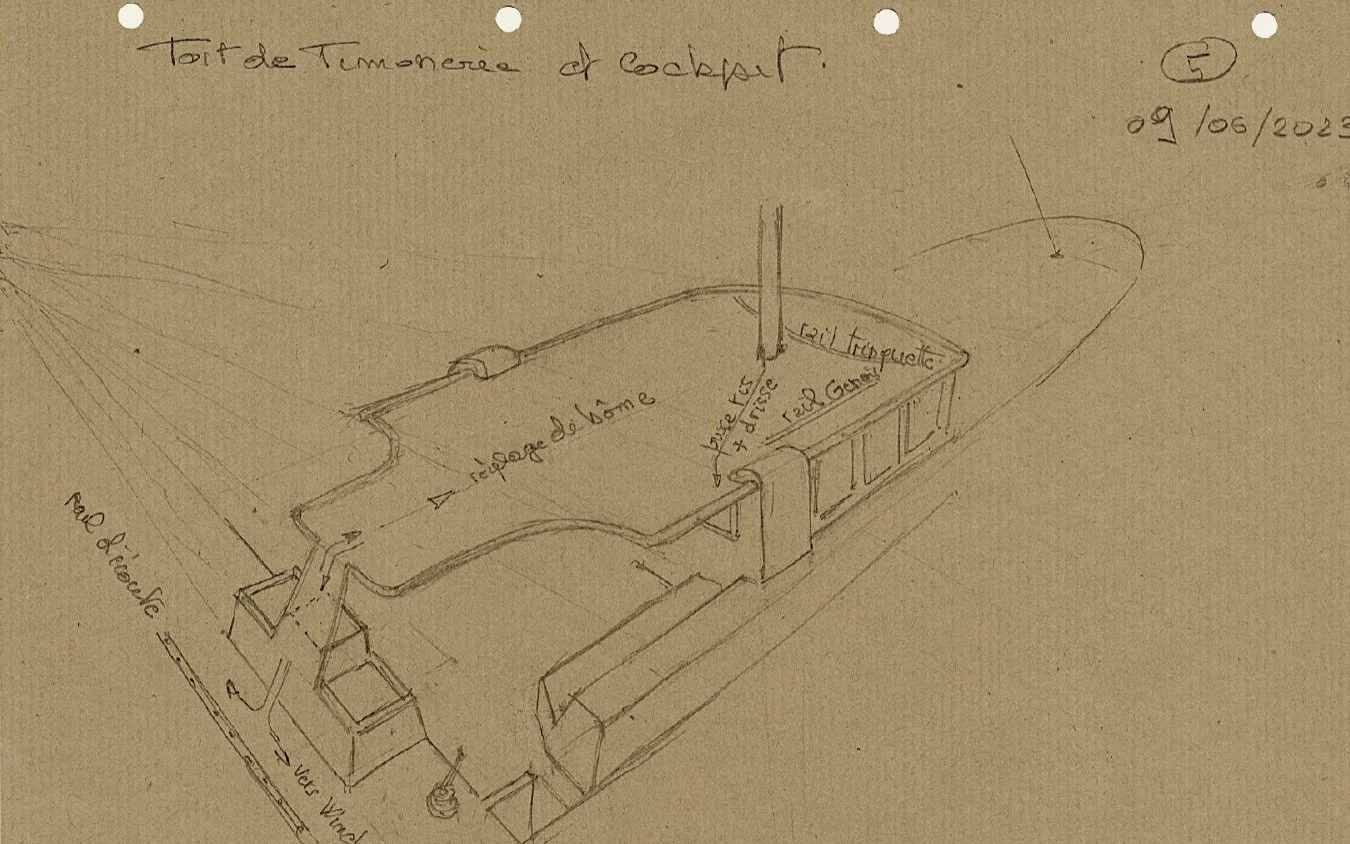 Toit de Timonerie et Cockpit.
5
09/06/2023
rail trinquette
rail Genois
prise ris
+ drisse
réglage de bôme
rail d'écoute
vers Winch